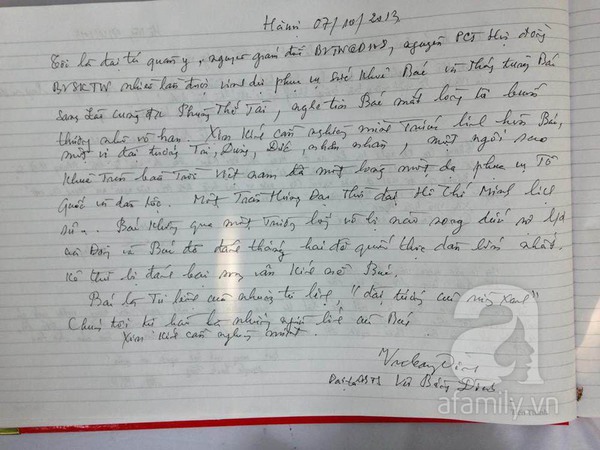 Hànội 07/10/2013
Tôi là đại tá quân y, nguyên giám đốc BVTWQĐ108, nguyên PCT Hội đồng
BVSKTW nhiều lần được vinh dự phục vụ Sức Khỏe Bác và Thượng tướng Bác
sang Lào cùng đ/c Phùng Thế Tài, nghe tin Bác mất lòng tôi buồn
thương nhớ vô hạn. Xin Kính cẩn nghiêng mình Trước linh hồn Bác,
một vị đại tướng Tài, Dũng, Đức, nhân nhân, một ngôi sao
Khuê Trên bầu Trời Việt nam đã một lòng một dạ phục vụ Tổ
Quốc và dân tộc. Một Trần Hưng Đạo Thời đại Hồ Chí Minh lịch
sử. Bác Không qua một Trường lớp võ bị nào song dưới sự l/đ
của Đảng và Bác đã đánh thắng hai đế quốc thực dân lớn nhất.
Kẻ thù bị đánh bại song vẫn Kính nể Bác.
Bác là Tư lệnh của những tư lệnh, "đại tướng của
Chúng tôi tự hào là những người lính của Bác
Xin Kính cẩn nghiêng mình.
Đại tá BS Vũ Bằng Đình
afamily.vn